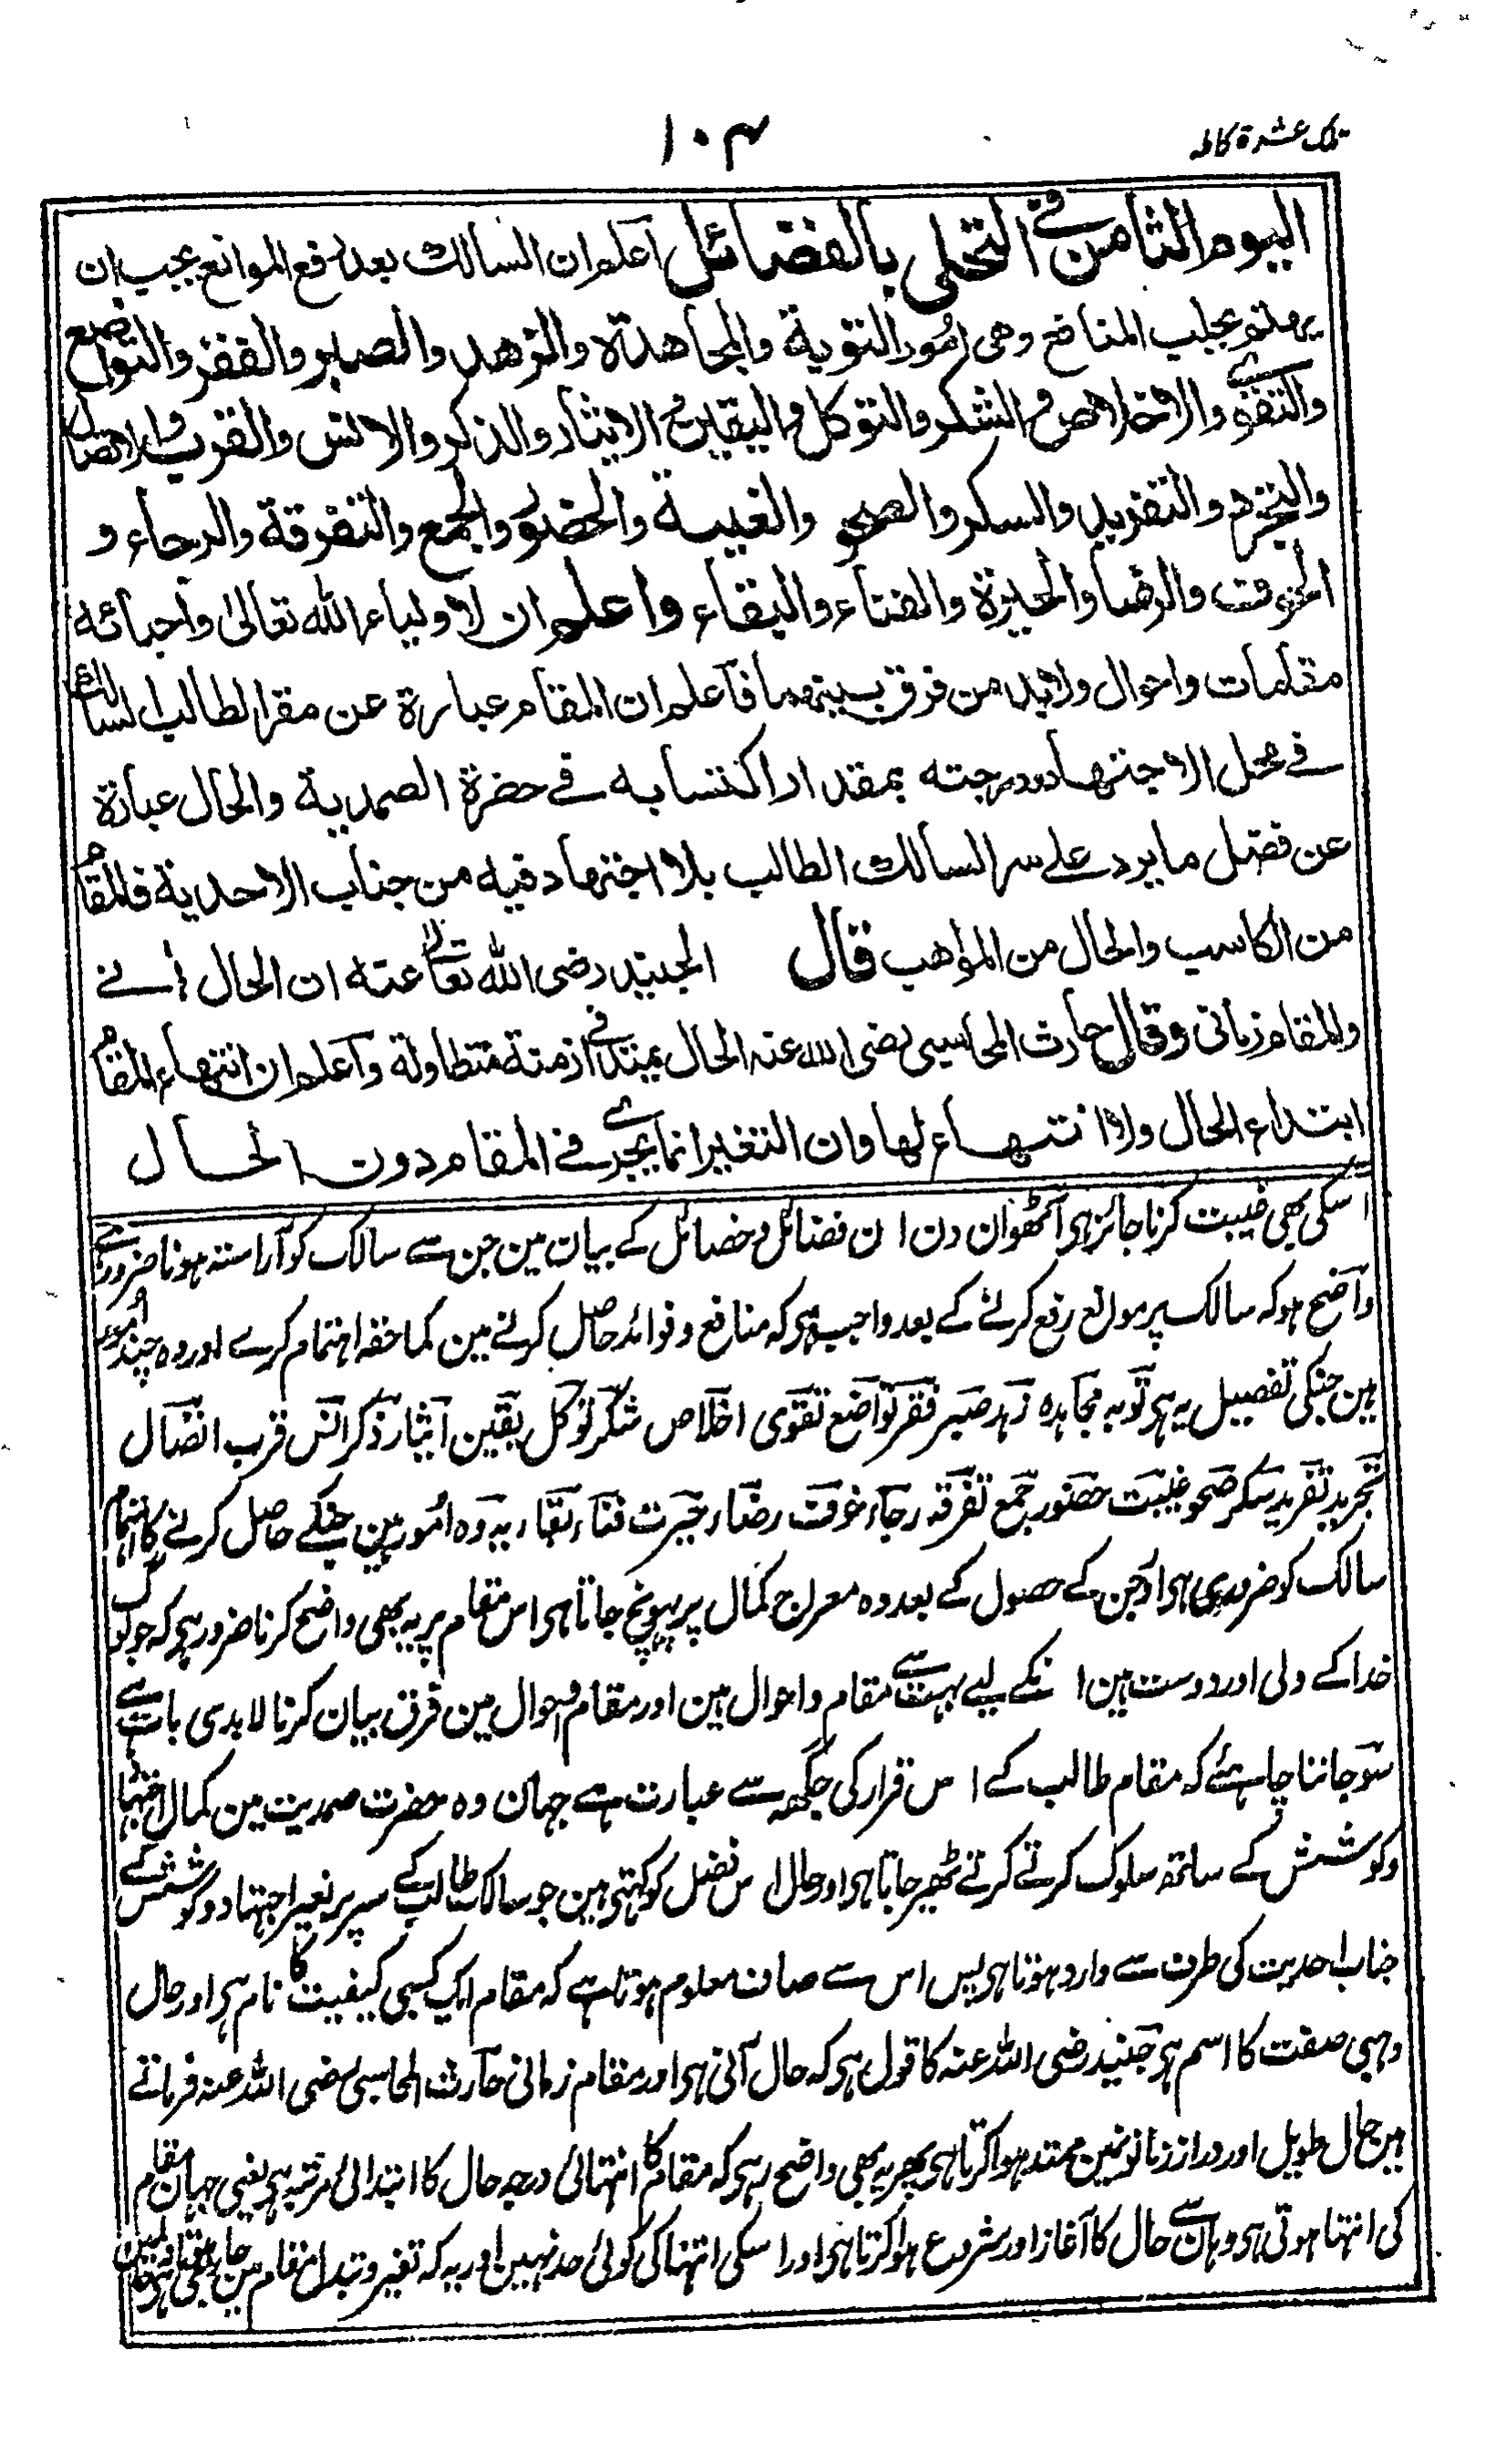 تلک عشرة کاملہ
۱۰۴
اليوم الثامن في التحلي بالفضائل اعلم ان السالك بعد رفع الموانع يجب ان
يهتم بجلب المنافع وهي امور التوبة والمجاهدة والزهد والصبر والفقر والتواضع
والتقوى والاخلاص والشكر والتوكل واليقين والايثار والذكر والانس والقرب والاتصال
والتجريد والتفريد والسكر والصحو والغيبة والحضور والجمع والتفرقة والرجاء و
الخوف والرضا والحيرة والفناء والبقاء واعلم ان لاولياء الله تعالى واحبائه
مقامات واحوال ولابد من فرق بينهما فاعلم ان المقام عبارة عن مقر الطالب السالك
في محل الاجتهاد ودرجته بمقدار اكتسابه في حضرة الصمدية والحال عبارة
عن فضل ما يرد على سر السالك الطالب بلا اجتهاد فيه من جناب الاحدية فالمقام
من الكاسب والحال من المواهب قال الجنيد رضي الله تعالى عنه ان الحال اني
والمقام زماني وقال حارث المحاسبي رضي الله عنه الحال يمتد في ازمنة متطاولة واعلم ان انتهاء المقام
ابتداء الحال ولا انتهاء لها وان التغير انما يجري في المقام دون الحال
اسکی بھی غیبت کرنا جائز ہی آٹھوان دن ان فضائل و خصائل کے بیان مین جن سے سالک کو آراستہ ہونا ضرور ہے
واضح ہو کہ سالک پر موانع رفع کرنے کے بعد واجب ہی کہ منافع و فوائد حاصل کرنے مین کما حقہ اہتمام کرے اور وہ چند امور
ہین جنکی تفصیل یہ ہی توبہ مجاہدہ زہد صبر فقر تواضع تقوی اخلاص شکر توکل یقین ایثار ذکر انس قرب اتصال
تجرید تفرید سکر صحو غیبت حضور جمع تفرقہ رجاء خوف رضاء حیرت فناء بقاء یہ وہ امور ہین جنکے حاصل کرنے کا اہتمام
سالک کو ضروری ہی اور جن کے حصول کے بعد وہ معراج کمال پر پہونچ جاتا ہی اس مقام پر یہ بھی واضح کرنا ضرور ہی کہ جو لوگ
خدا کے ولی اور دوست ہین انکے لیے بہت سے مقام و احوال ہین اور مقام و احوال مین فرق بیان کرنا لابدی بات ہے
سو جاننا چاہئے کہ مقام طالب کے اس قرار کی جگھہ سے عبارت ہے جہان وہ حضرت صمدیت مین کمال اجتہاد
وکوشش کے ساتھ سلوک کرتے کرتے ٹھیر جاتا ہی اور حال اس فضل کو کہتی ہین جو سالک طالب کے سر پر بغیر اجتہاد و کوشش کے
جناب احدیت کی طرف سے وارد ہوتا ہی پس اس سے صاف معلوم ہوتا ہے کہ مقام ایک کسبی کیفیت کا نام ہی اور حال
وہبی صفت کا اسم ہی جنید رضی اللہ عنہ کا قول ہی کہ حال آنی ہی اور مقام زمانی حارث المحاسبی رضی اللہ عنہ فرماتے
ہین حال طویل اور دراز زمانونمین ممتد ہوا کرتا ہی پھر یہ بھی واضح رہی کہ مقام کا انتہائی درجہ حال کا ابتدائی مرتبہ ہی یعنی جہان مقام
کی انتہا ہوتی ہی وہان سے حال کا آغاز اور شروع ہوا کرتا ہی اور اسکی انتہا کی کوئی حد نہین اور یہ کہ تغیر و تبدل مقام مین